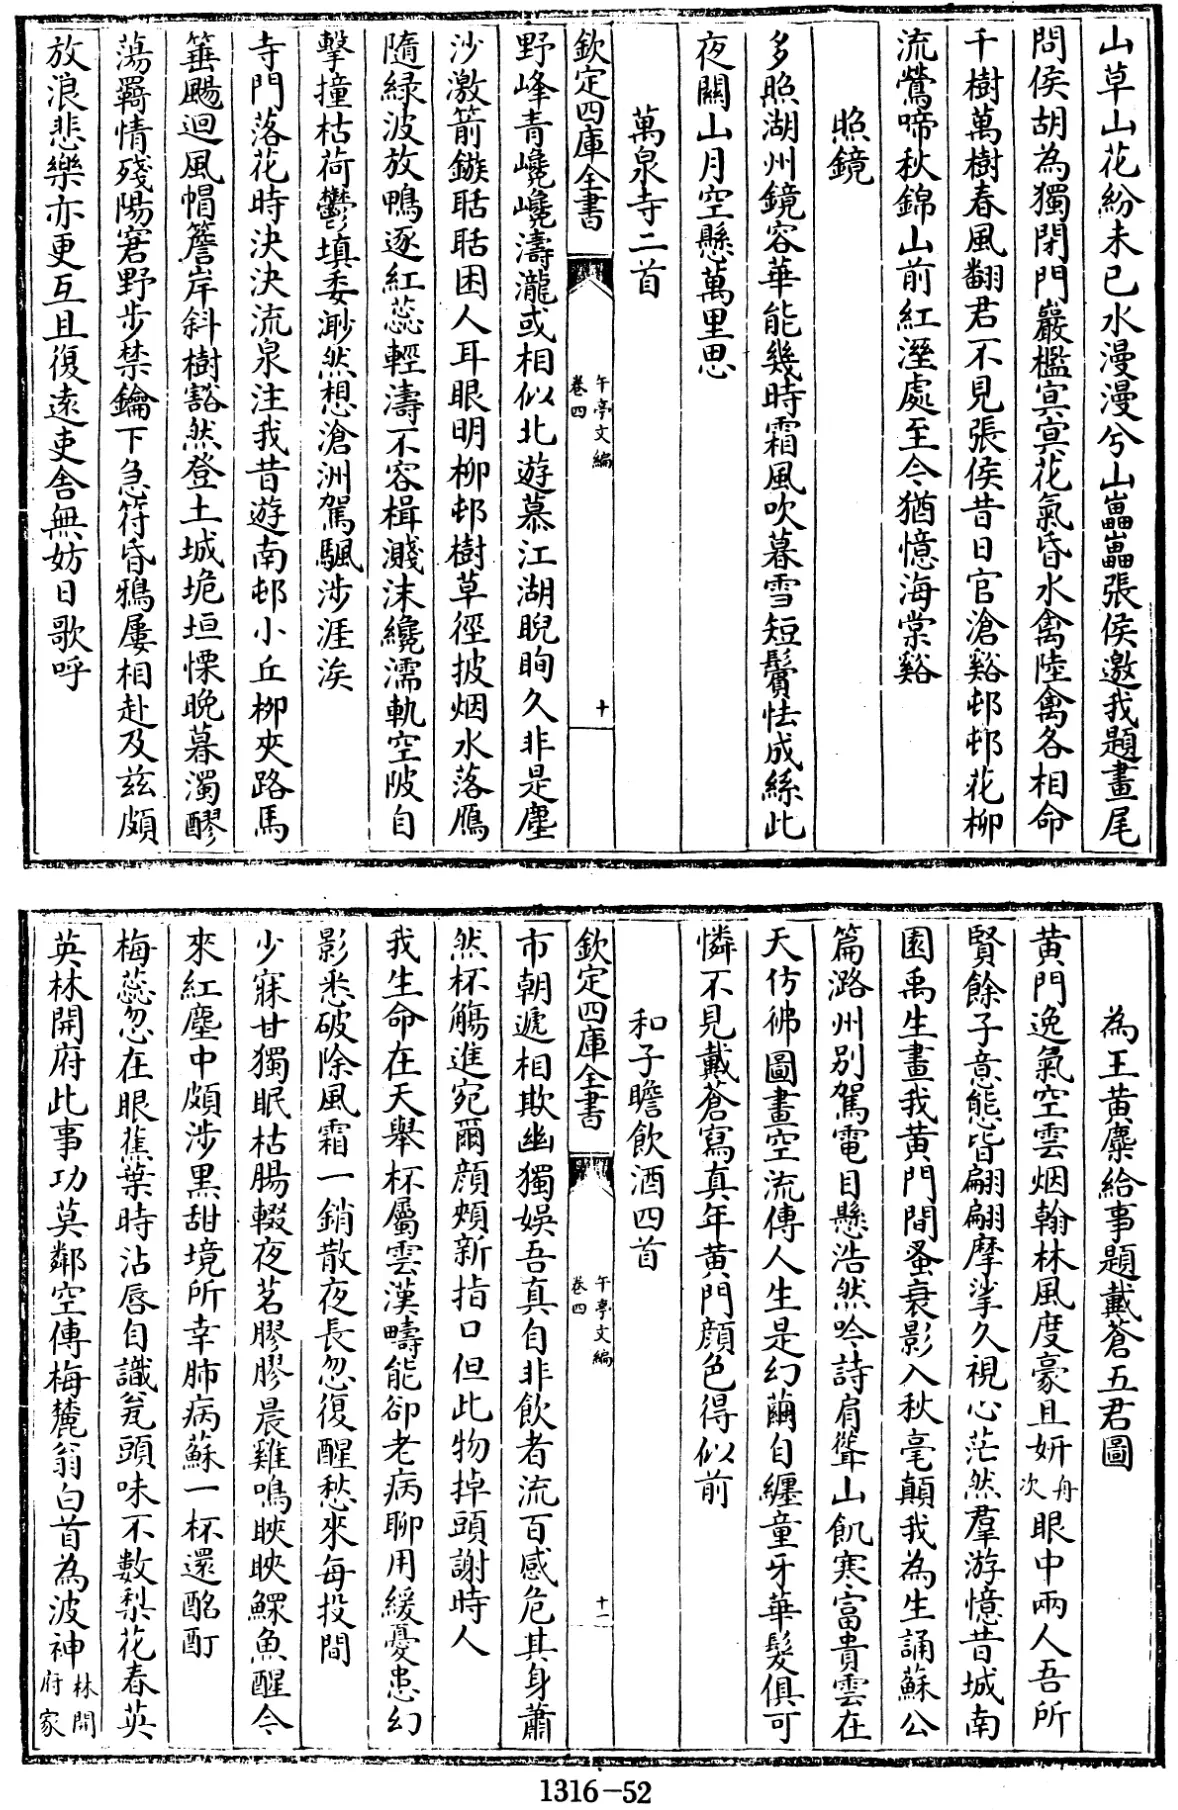 山草山花紛未已水漫漫兮山畾畾張侯邀我題畫尾
問侯胡為獨閉門巖檻寘寘花氣昏水禽陸禽各相命
千樹萬樹春風翻君不見張侯昔日官滄谿邨邨花柳
流鶯啼秋錦山前紅溼處至今猶憶海棠谿
照鏡
多照湖州鏡容華能幾時霜風吹暮雪短鬢怯成絲此
夜關山月空懸萬里思
萬泉寺二首
欽定四庫全書
午亭文編
卷四
十
野峰青巉巉濤瀧或相似北遊慕江湖睨眴久非是塵
沙激箭鏃聒聒困人耳眼明柳邨樹草徑披烟水落鴈
隨綠波放鴨逐紅蕊輕濤不容楫濺沫纔濡軌空陂自
擊撞枯荷鬱填委渺然想滄洲駕颿涉涯涘
寺門落花時決決流泉注我昔遊南邨小丘柳夾路馬
箠颺迴風帽簷岸斜樹豁然登土城垝垣慄晚暮濁醪
蕩羇情殘陽窘野步禁鑰下急符昏鴉屢相赴及茲頗
放浪悲樂亦更互且復遠吏舍無妨日歌呼
為王黄麋給事題戴蒼五君圖
黄門逸氣空雲烟翰林風度豪且妍舟次眼中兩人吾所
賢餘子意態皆翩翩摩挲久視心茫然羣游憶昔城南
園禹生畫我黄門間蚤衰影入秋毫顛我為生誦蘇公
篇潞州別駕電目懸浩然吟詩肩聳山飢寒富貴雲在
天仿彿圖畫空流傳人生是幻繭自纏童牙華髮俱可
憐不見戴蒼寫真年黄門顔色得似前
和子瞻飲酒四首
欽定四庫全書
午亭文編
卷四
十一
市朝遞相欺幽獨娛吾真自非飲者流百感危其身蕭
然杯觴進宛爾顔頰新指口但此物掉頭謝時人
我生命在天舉杯屬雲漢疇能卻老病聊用緩憂患幻
影悉破除風霜一銷散夜長忽復醒愁來每投間
少寐甘獨眠枯腸輟夜茗膠膠晨雞鳴睒睒鰥魚醒今
來紅塵中頗涉黒甜境所幸肺病蘇一杯還酩酊
梅蕊忽在眼蕉葉時沾唇自識瓮頭味不數梨花春英
英林開府此事功莫鄰空傳梅麓翁白首為波神林開府家
1316-52